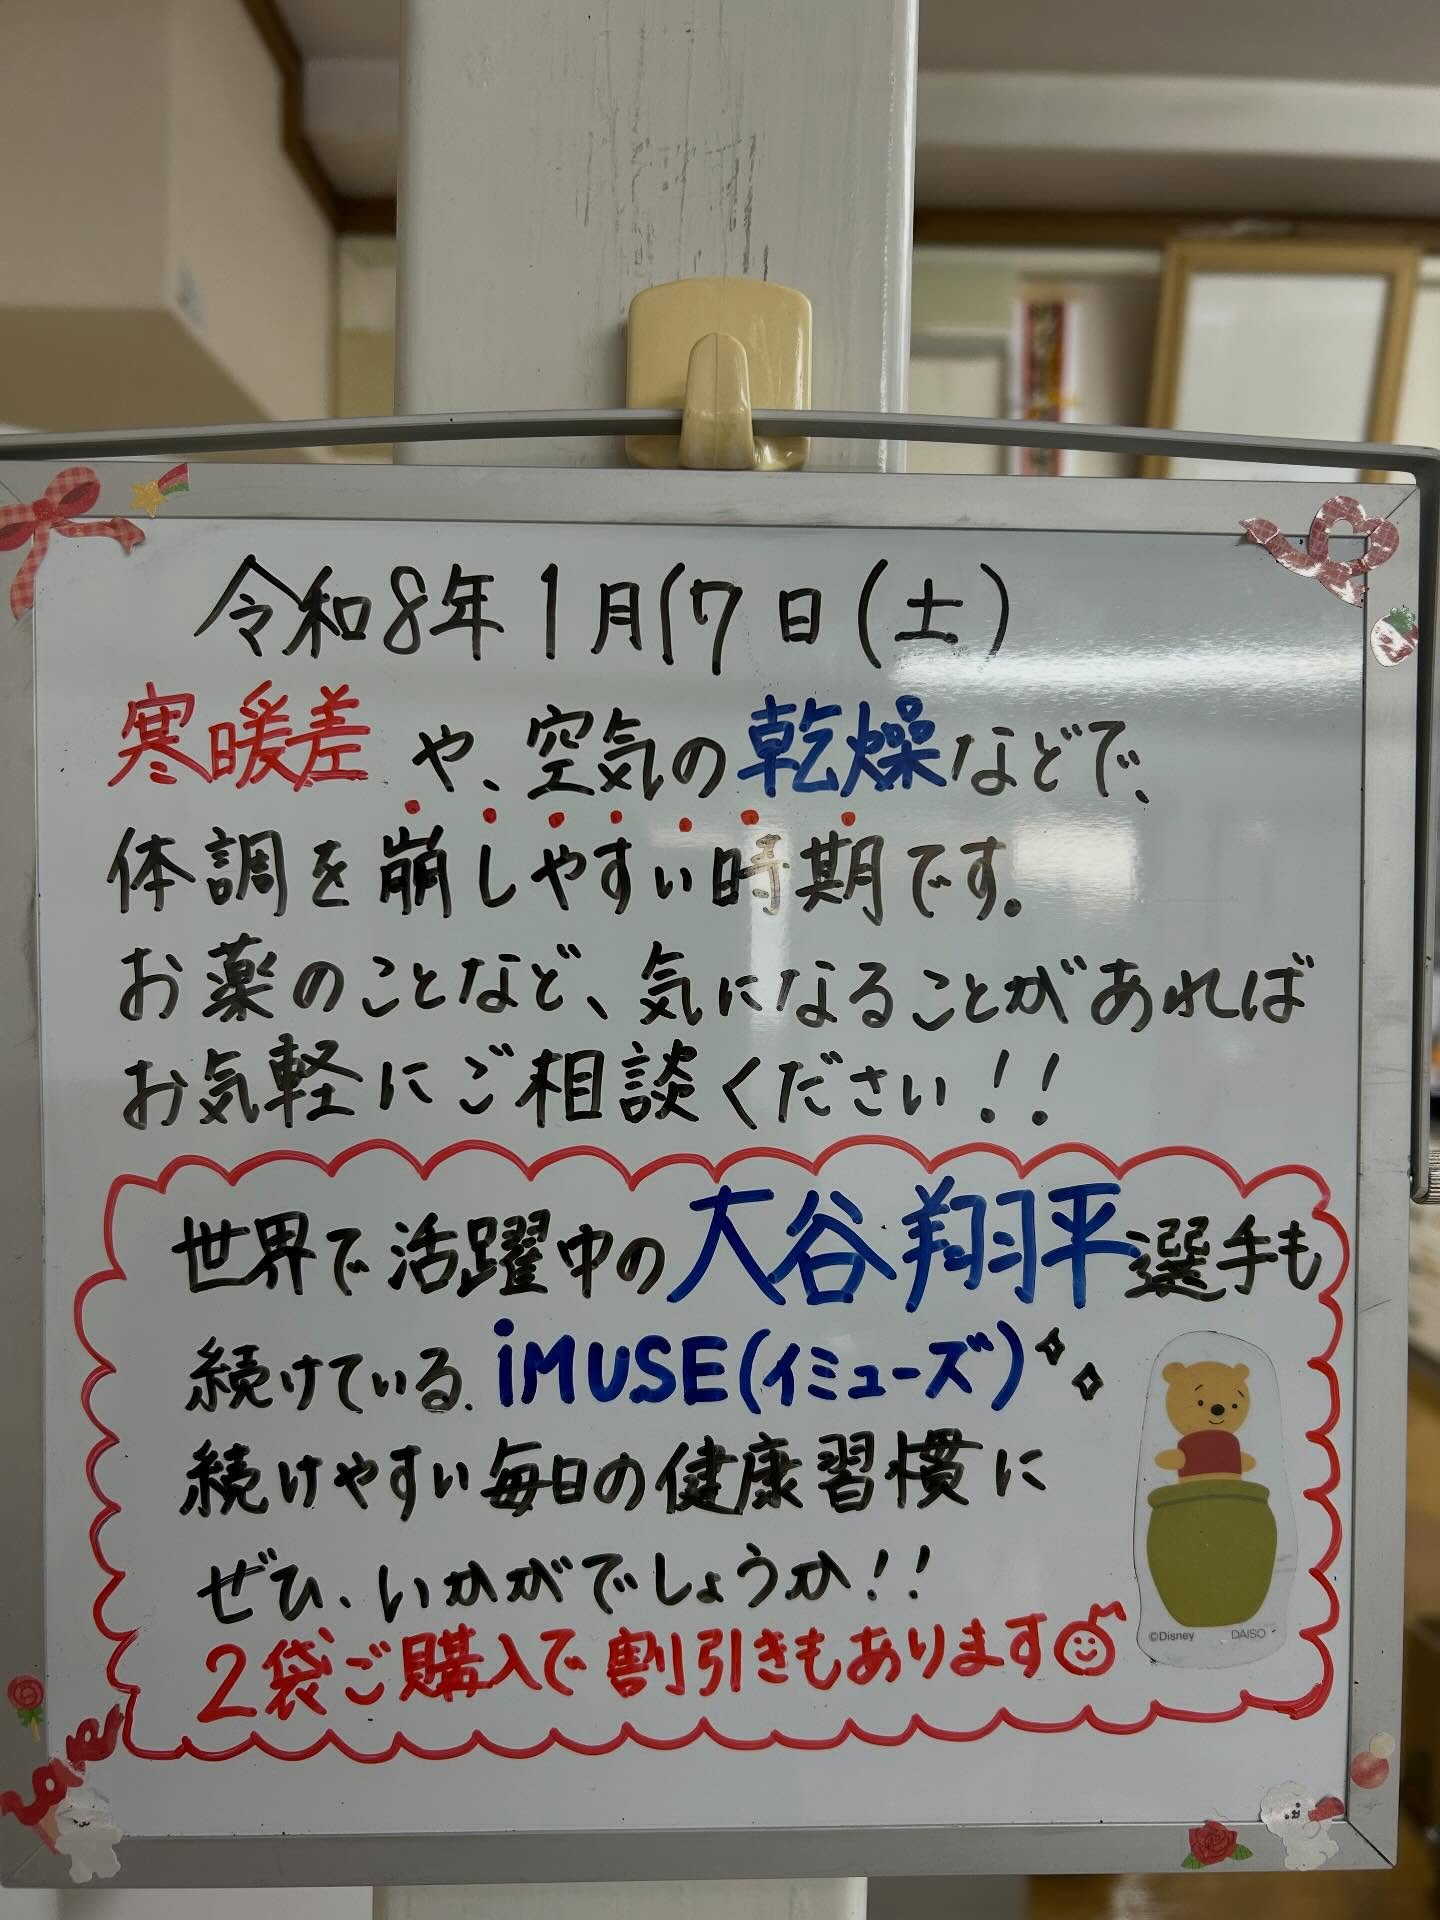 令和8年1月17日(土)
寒暖差や、空気の乾燥などで、
体調を崩しやすい時期です。
お薬のことなど、気になることがあれば
お気軽にご相談ください!!
世界で活躍中の大谷翔平選手も
続けている、iMUSE(イミューズ)
続けやすい毎日の健康習慣に
ぜひ、いかがでしょうか!!
2袋ご購入で割引きもあります
©Disney DAISO